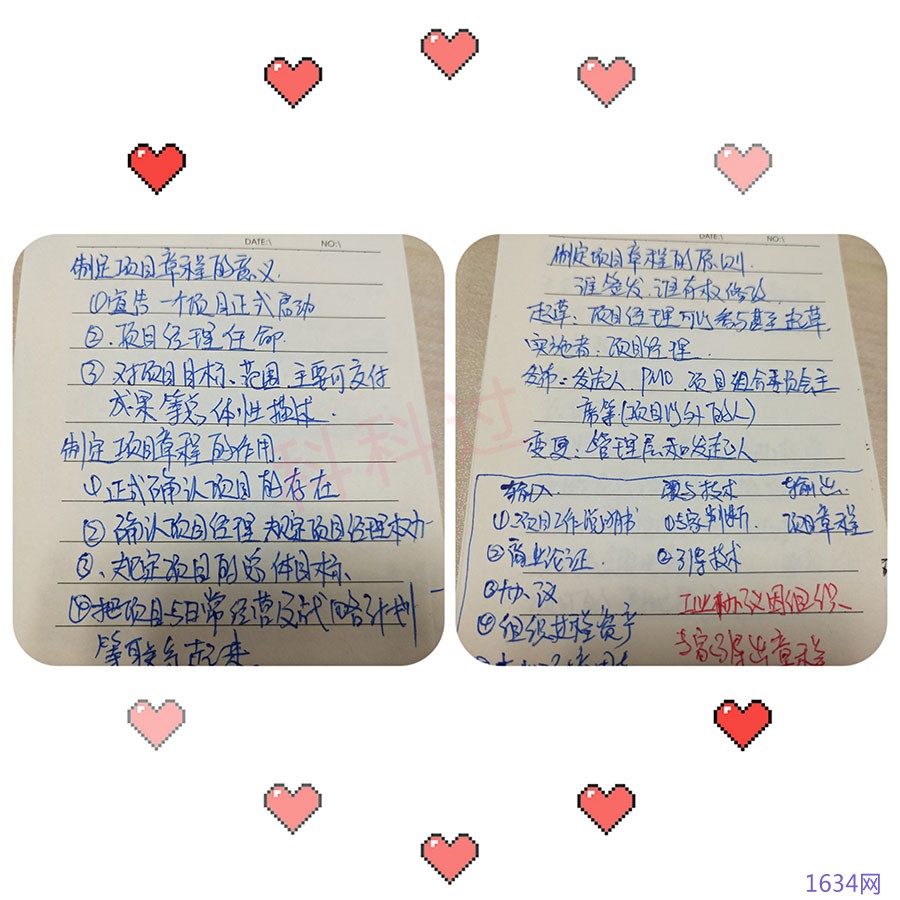 DATE:\ NO:\
制定项目章程的意义.
①宣告一个项目正式启动
②.项目经理任命.
③对项目目标、范围、主要可交付
成果等总体性描述.
制定项目章程的作用.
①正式确认项目的存在
②确认项目经理,规定项目经理权力
③、规定项目的总体目标、
④把项目与日常经营及战略计划
等联系起来.
DATE:\ NO:\
制定项目章程的原则.
谁签发、谁有权修改
起草:项目经理可以参与甚至起草
实施者:项目经理.
发布:发起人、PMO、项目组合委员会主
席等(项目以外的人)
变更:管理层和发起人
输入. 工具与技术 输出.
①.项目工作说明书 ①专家判断. 项目章程
②商业论证. ②引导技术
③协议
④组织过程资产
工业协议因组织、
专家引导出章程
科科过
1634网